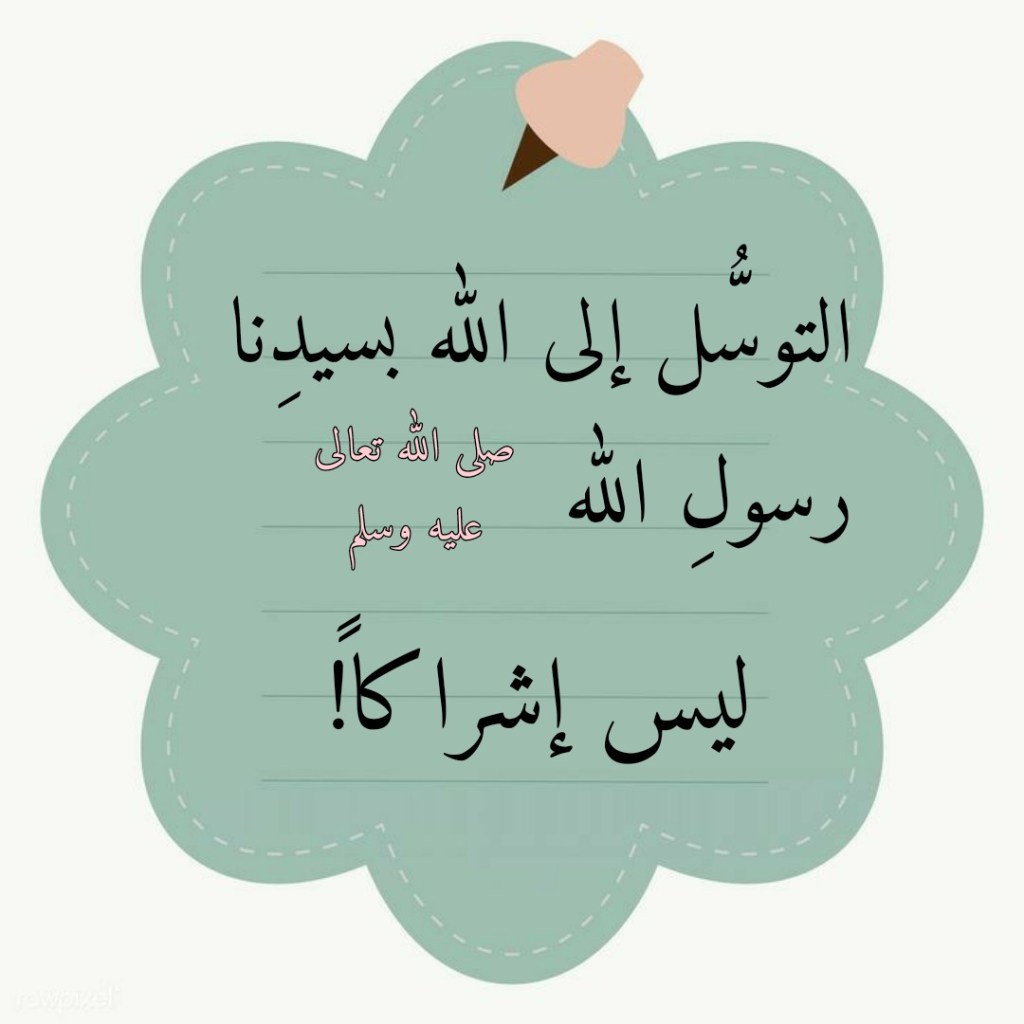 التوسُّل إلى الله بسيدِنا
رسولِ الله صلى الله تعالى
عليه وسلم
ليس إشراكاً!
rawpixel